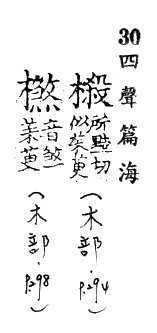 30 四聲篇海
樧 所黠切 似茱萸 (木部·P.294)
音煞 茱萸 (木部·P.298)